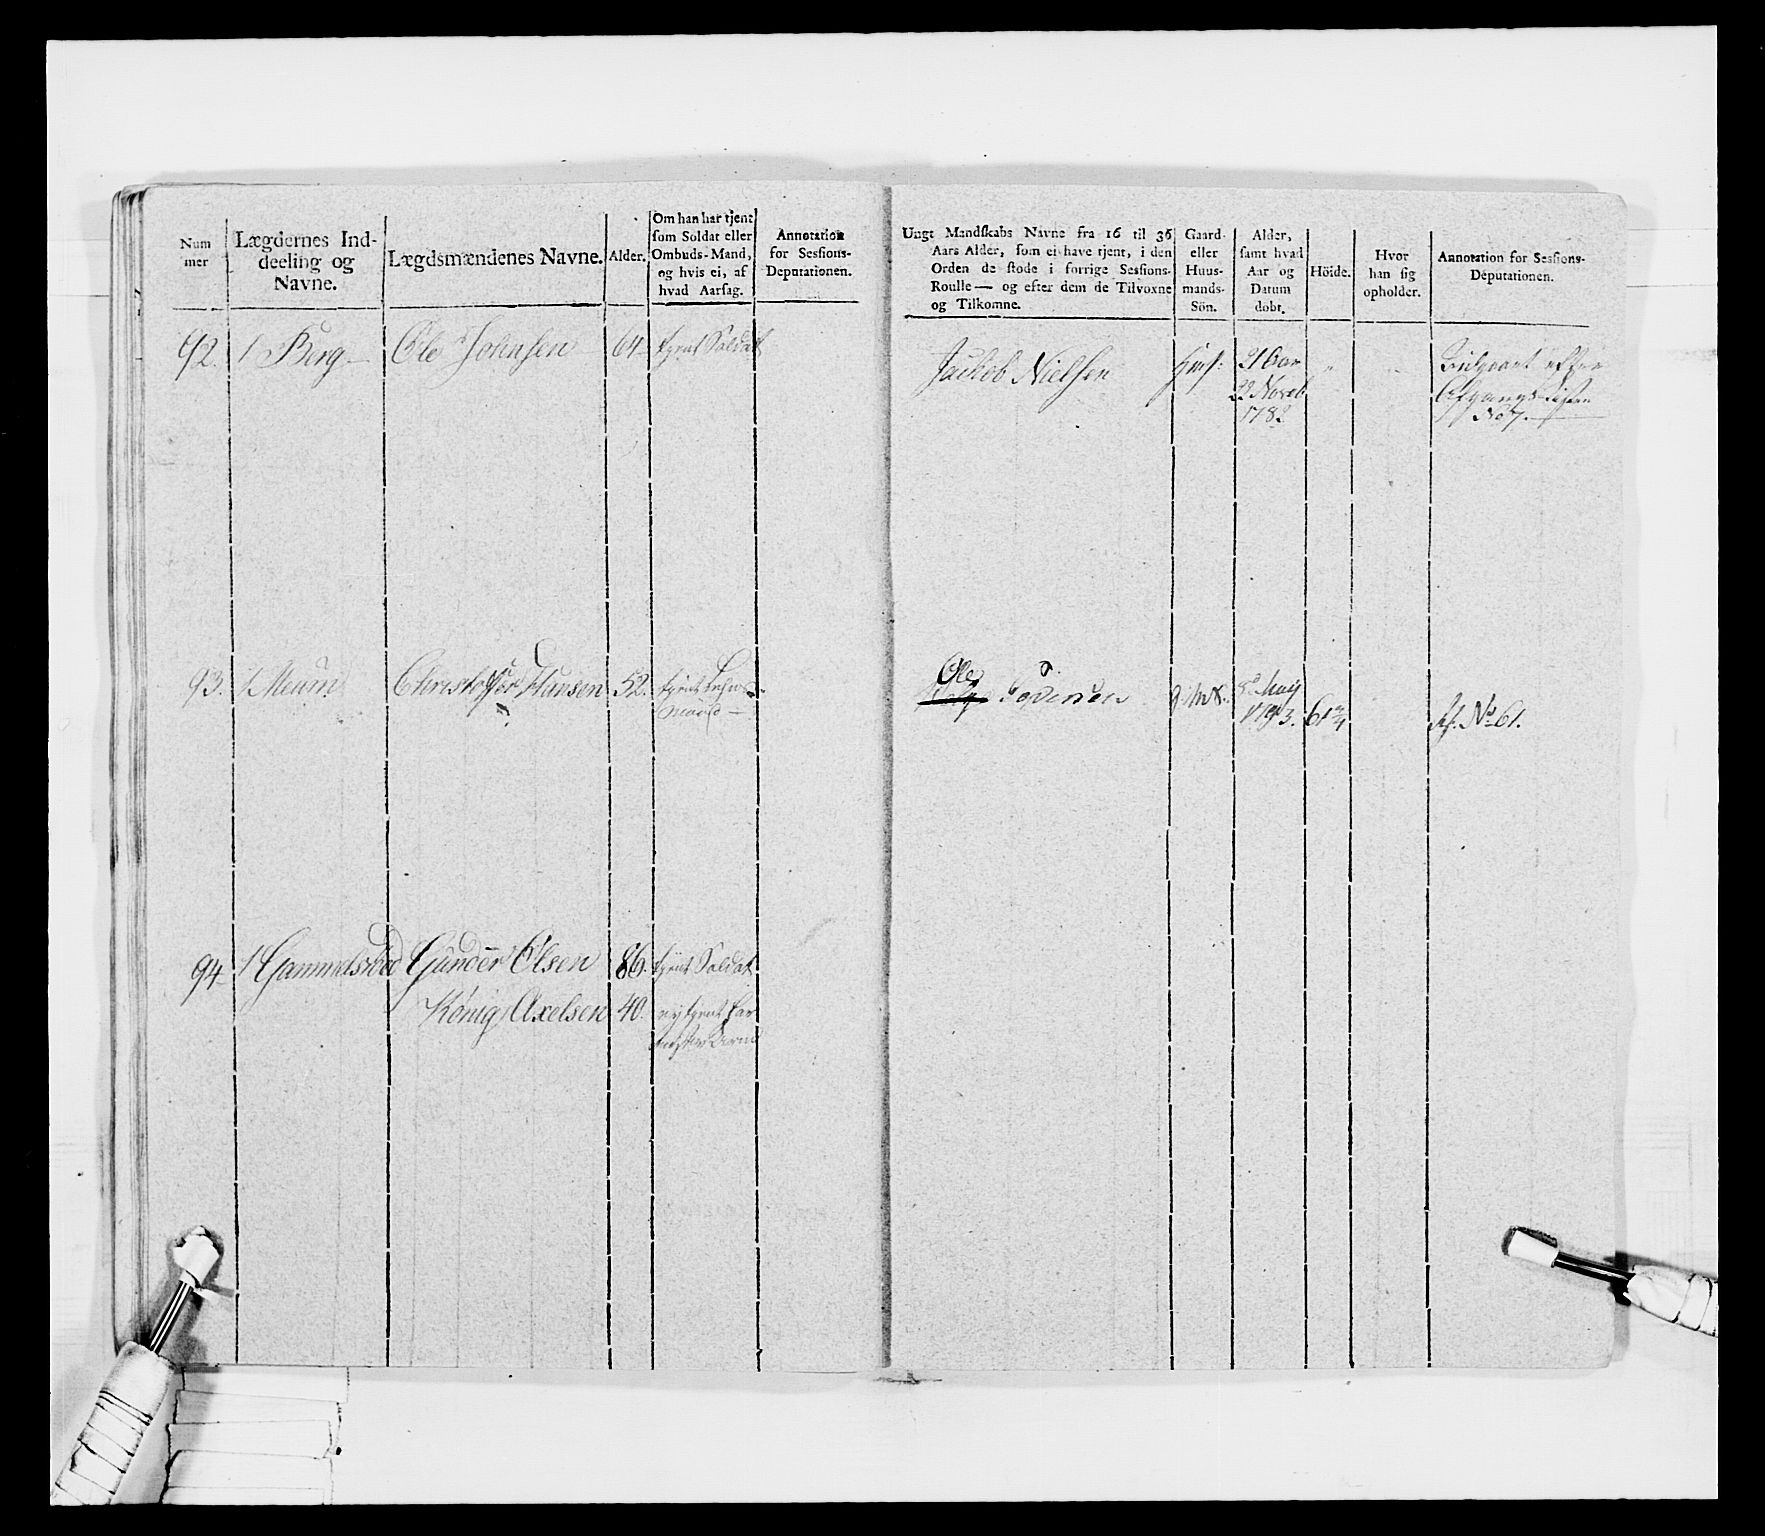 Num
mer
Lægdernes Ind-
deeling og
Navne.
Lægdsmændenes Navne.
Alder.
Om han har tjent
som Soldat eller
Ombuds-Mand,
og hvis ei, af
hvad Aarsag.
Annotation
for Sessions-
Deputationen.
92. 1 Berg Ole Johnsen 64 tjent Soldat
93. 1 Meum Christoffer Hansen 52. tjent
94 1 Gammelsrød Gunder Olsen 86. tjent Soldat
König Axelsen 40. ej tjent har
Ungt Mandskabs Navne fra 16 til 36
Aars Alder, som ei have tjent, i den
Orden de stode i forrige Sessions-
Roulle — og efter dem de Tilvoxne
og Tilkomne.
Gaard-
eller
Huus-
mands-
Sön.
Alder,
samt hvad
Aar og
Datum
dobt.
Höide.
Hvor
han sig
opholder.
Annotation for Sessions-
Deputationen.
Jackob Nielsen 21 Aar
22 Noveb
1782
Afgangs Listen
No 7.
Ole
May
61 3/4
No 61.